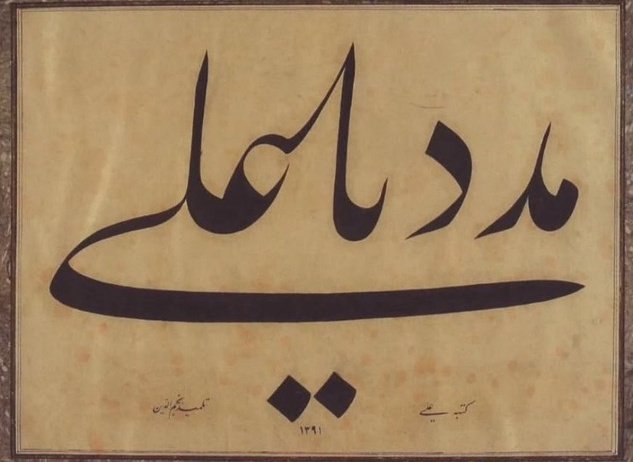 مدد یا علی
کتبه علی
تلمیذ نجم الدین
۱۳۹۱